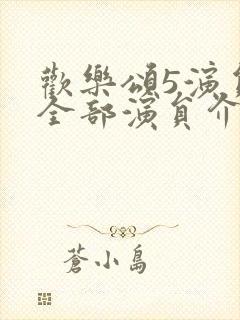 歡樂頌5演員
全部演員介
蒼小島